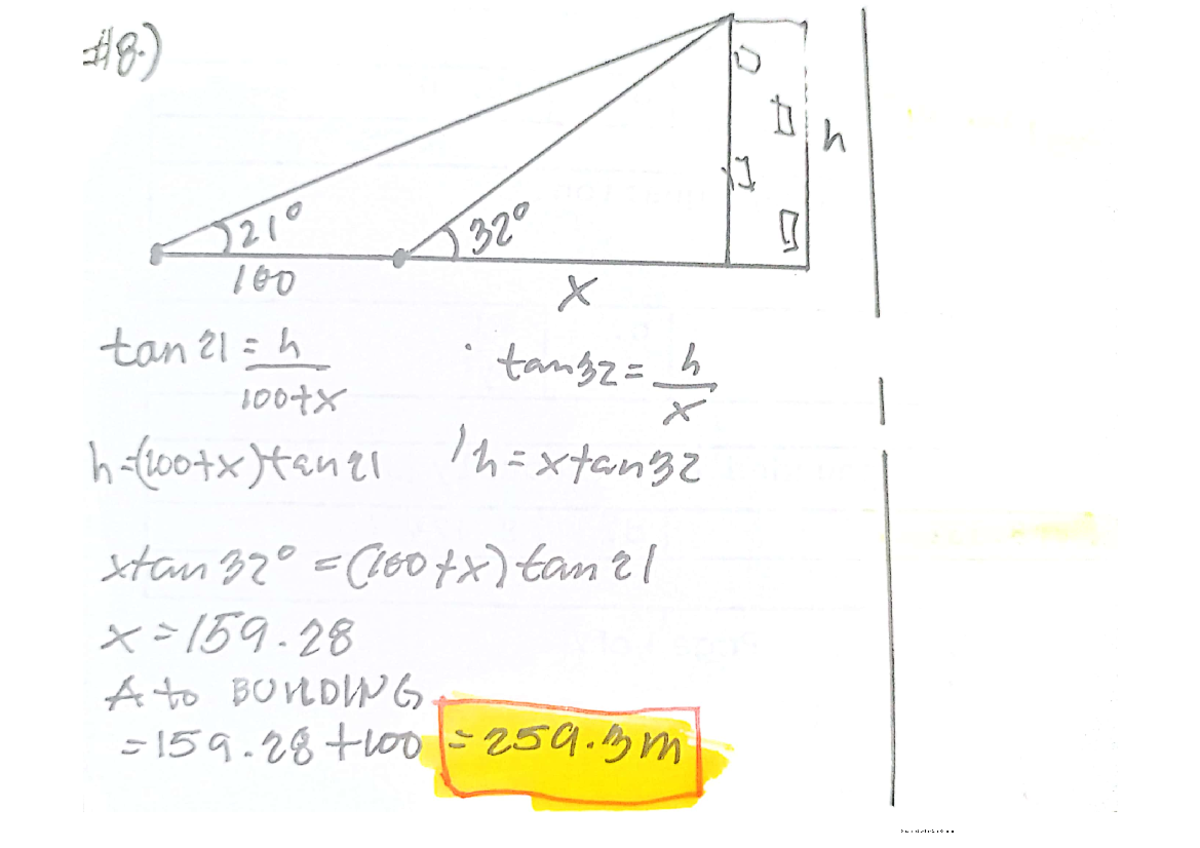 #8.)
h
21°
32°
100
x
tan 21 = h
100+x
tan32 = h
x
h=(100+x)tan21
h=xtan32
xtan32°=(100+x)tan21
x=159.28
A to BUILDING
=159.28+100 =259.3m